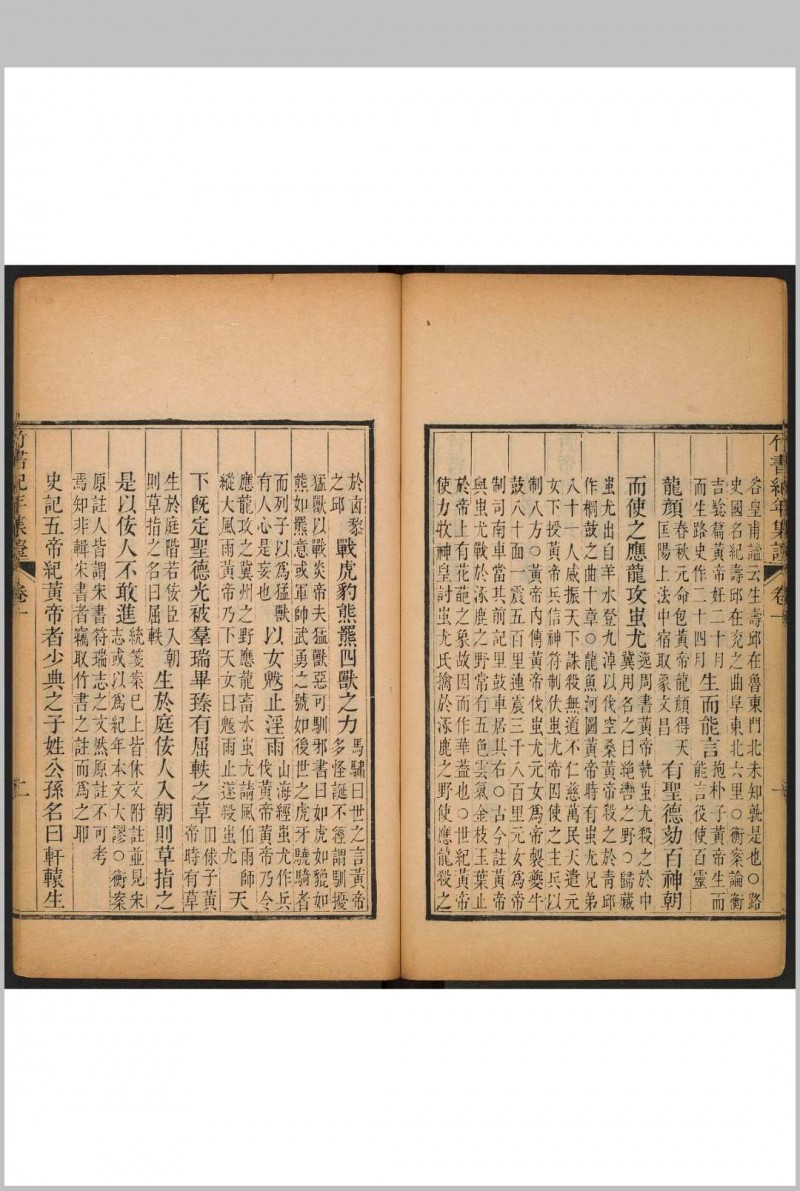 竹書紀年集證 卷一
谷皇甫謐云生壽邱在魯東門北未知孰是也○路
史國名紀壽邱在兖之曲阜東北六里○衡案論衡
吉驗篇黃帝妊二十月
而生路史作二十四月
生而能言
抱朴子黃帝生而
能言役使百靈
龍顏
春秋元命包黃帝龍顏得天
匡陽上法中宿取象文昌
有聖德劾百神朝
而使之應龍攻蚩尤
逸周書黃帝執蚩尤殺之於中
冀用名之曰絶轡之野○歸藏
蚩尤出自羊水登九淖以伐空桑黃帝殺之於青邱
作棡鼓之曲十章○龍魚河圖黃帝時有蚩尤兄弟
八十一人威振天下誅殺無道不仁慈萬民天遣元
女下授黃帝兵信神符制伏蚩尤帝因使之主兵以
制八方○黃帝內傳黃帝伐蚩尤元女爲帝製夔牛
鼓八十面一震五百里連震三千八百里元女爲帝
制司南車當其前記里鼓車居其右○古今註黃帝
與蚩尤戰於涿鹿之野常有五色雲氣金枝玉葉止
於帝上有花葩之象故因而作華蓋也○世紀黃帝
使力牧神皇討蚩尤氏擒於涿鹿之野使應龍殺之
於凶黎
之邱
戰虎豹熊羆四獸之力
馬驌曰世之言黃帝
多怪誕不經謂馴擾
猛獸以戰炎帝夫猛獸惡可馴邪書曰如虎如貔如
熊如羆意或軍帥武勇之號如後世之虎牙驍騎者
而列子以爲猛獸
有人心是妄也
以女魃止淫雨
山海經蚩尤作兵
伐黃帝黃帝乃令
應龍攻之冀州之野應龍畜水蚩尤請風伯雨師
縱大風雨黃帝乃下天女曰魃雨止遂殺蚩尤
天
下旣定聖德光被羣瑞畢臻有屈軼之草
田俅子黃
帝時有草
生於庭階若佞臣入朝
則草指之名曰屈軼
生於庭佞人入朝則草指之
是以佞人不敢進
統箋案已上皆休文附註並見宋
志或以爲紀年本文大謬○衡案
原註人皆謂宋書符瑞志之文然原註不可考
焉知非輯宋書者竊取竹書之註而爲之耶
史記五帝紀黃帝者少典之子姓公孫名曰軒轅生
竹書紀年集證 卷一